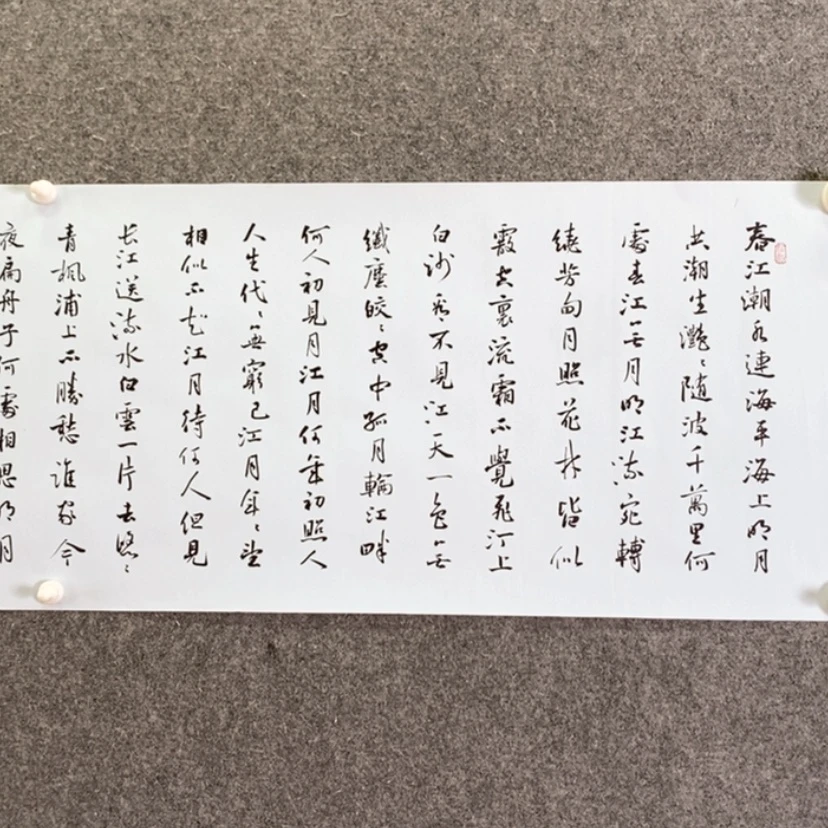 春江潮水連海平海上明月
共潮生灧〻随波千萬里何
處春江無月明江流宛轉
繞芳甸月照花林皆似
霰空裏流霜不覺飛汀上
白沙看不見江天一色無
纖塵皎〻空中孤月輪江畔
何人初見月江月何年初照人
人生代〻無窮已江月年〻望
相似不知江月待何人但見
长江送流水白雲一片去悠〻
青楓浦上不勝愁誰家今
夜扁舟子何處相思明月